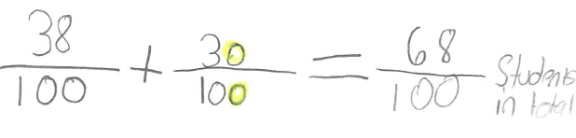 38/100 + 30/100 = 68/100 Students
in total